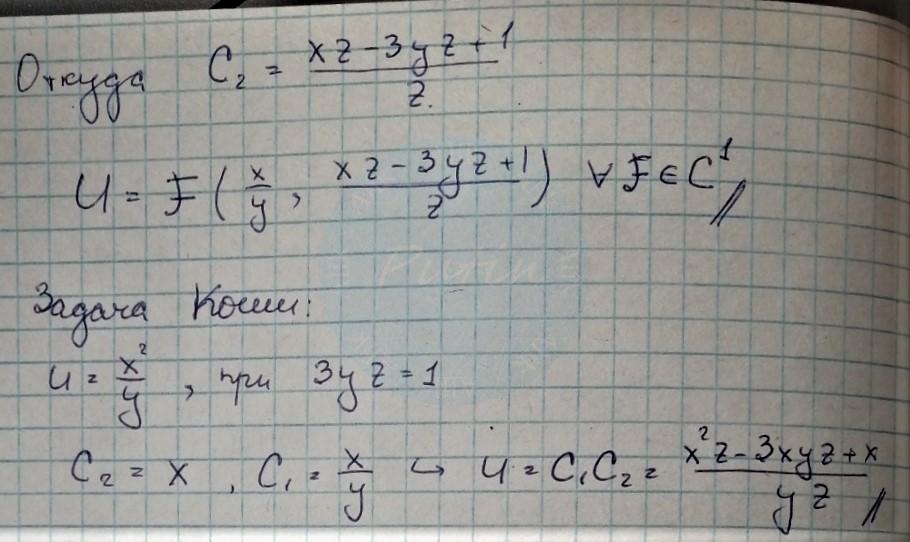 Откуда C₂ = (xz - 3yz + 1)/z.
U = F(x/y, (xz - 3yz + 1)/z) ∀ F ∈ C¹ //
Задача Коши:
u = x²/y, при 3yz = 1
C₂ = x, C₁ = x/y ↪ u = C₁C₂ = (x²z - 3xyz + x)/(yz) //